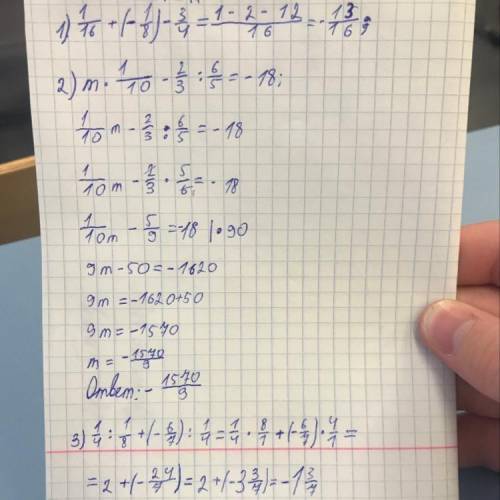 1) 1/16 + (-1/8) - 3/4 = (1 - 2 - 12)/16 = -13/16;
2) m · 1/10 - 2/3 : 6/5 = -18;
1/10 m - 2/3 : 6/5 = -18
1/10 m - 2/3 · 5/6 = -18
1/10 m - 5/9 = -18 | · 90
9m - 50 = -1620
9m = -1620 + 50
9m = -1570
m = -1570/9
Ответ: -1570/9
3) 1/4 : 1/8 + (-6/7) : 1/4 = 1/4 · 8/1 + (-6/7) · 4/1 =
= 2 + (-24/7) = 2 + (-3 3/7) = -1 3/7